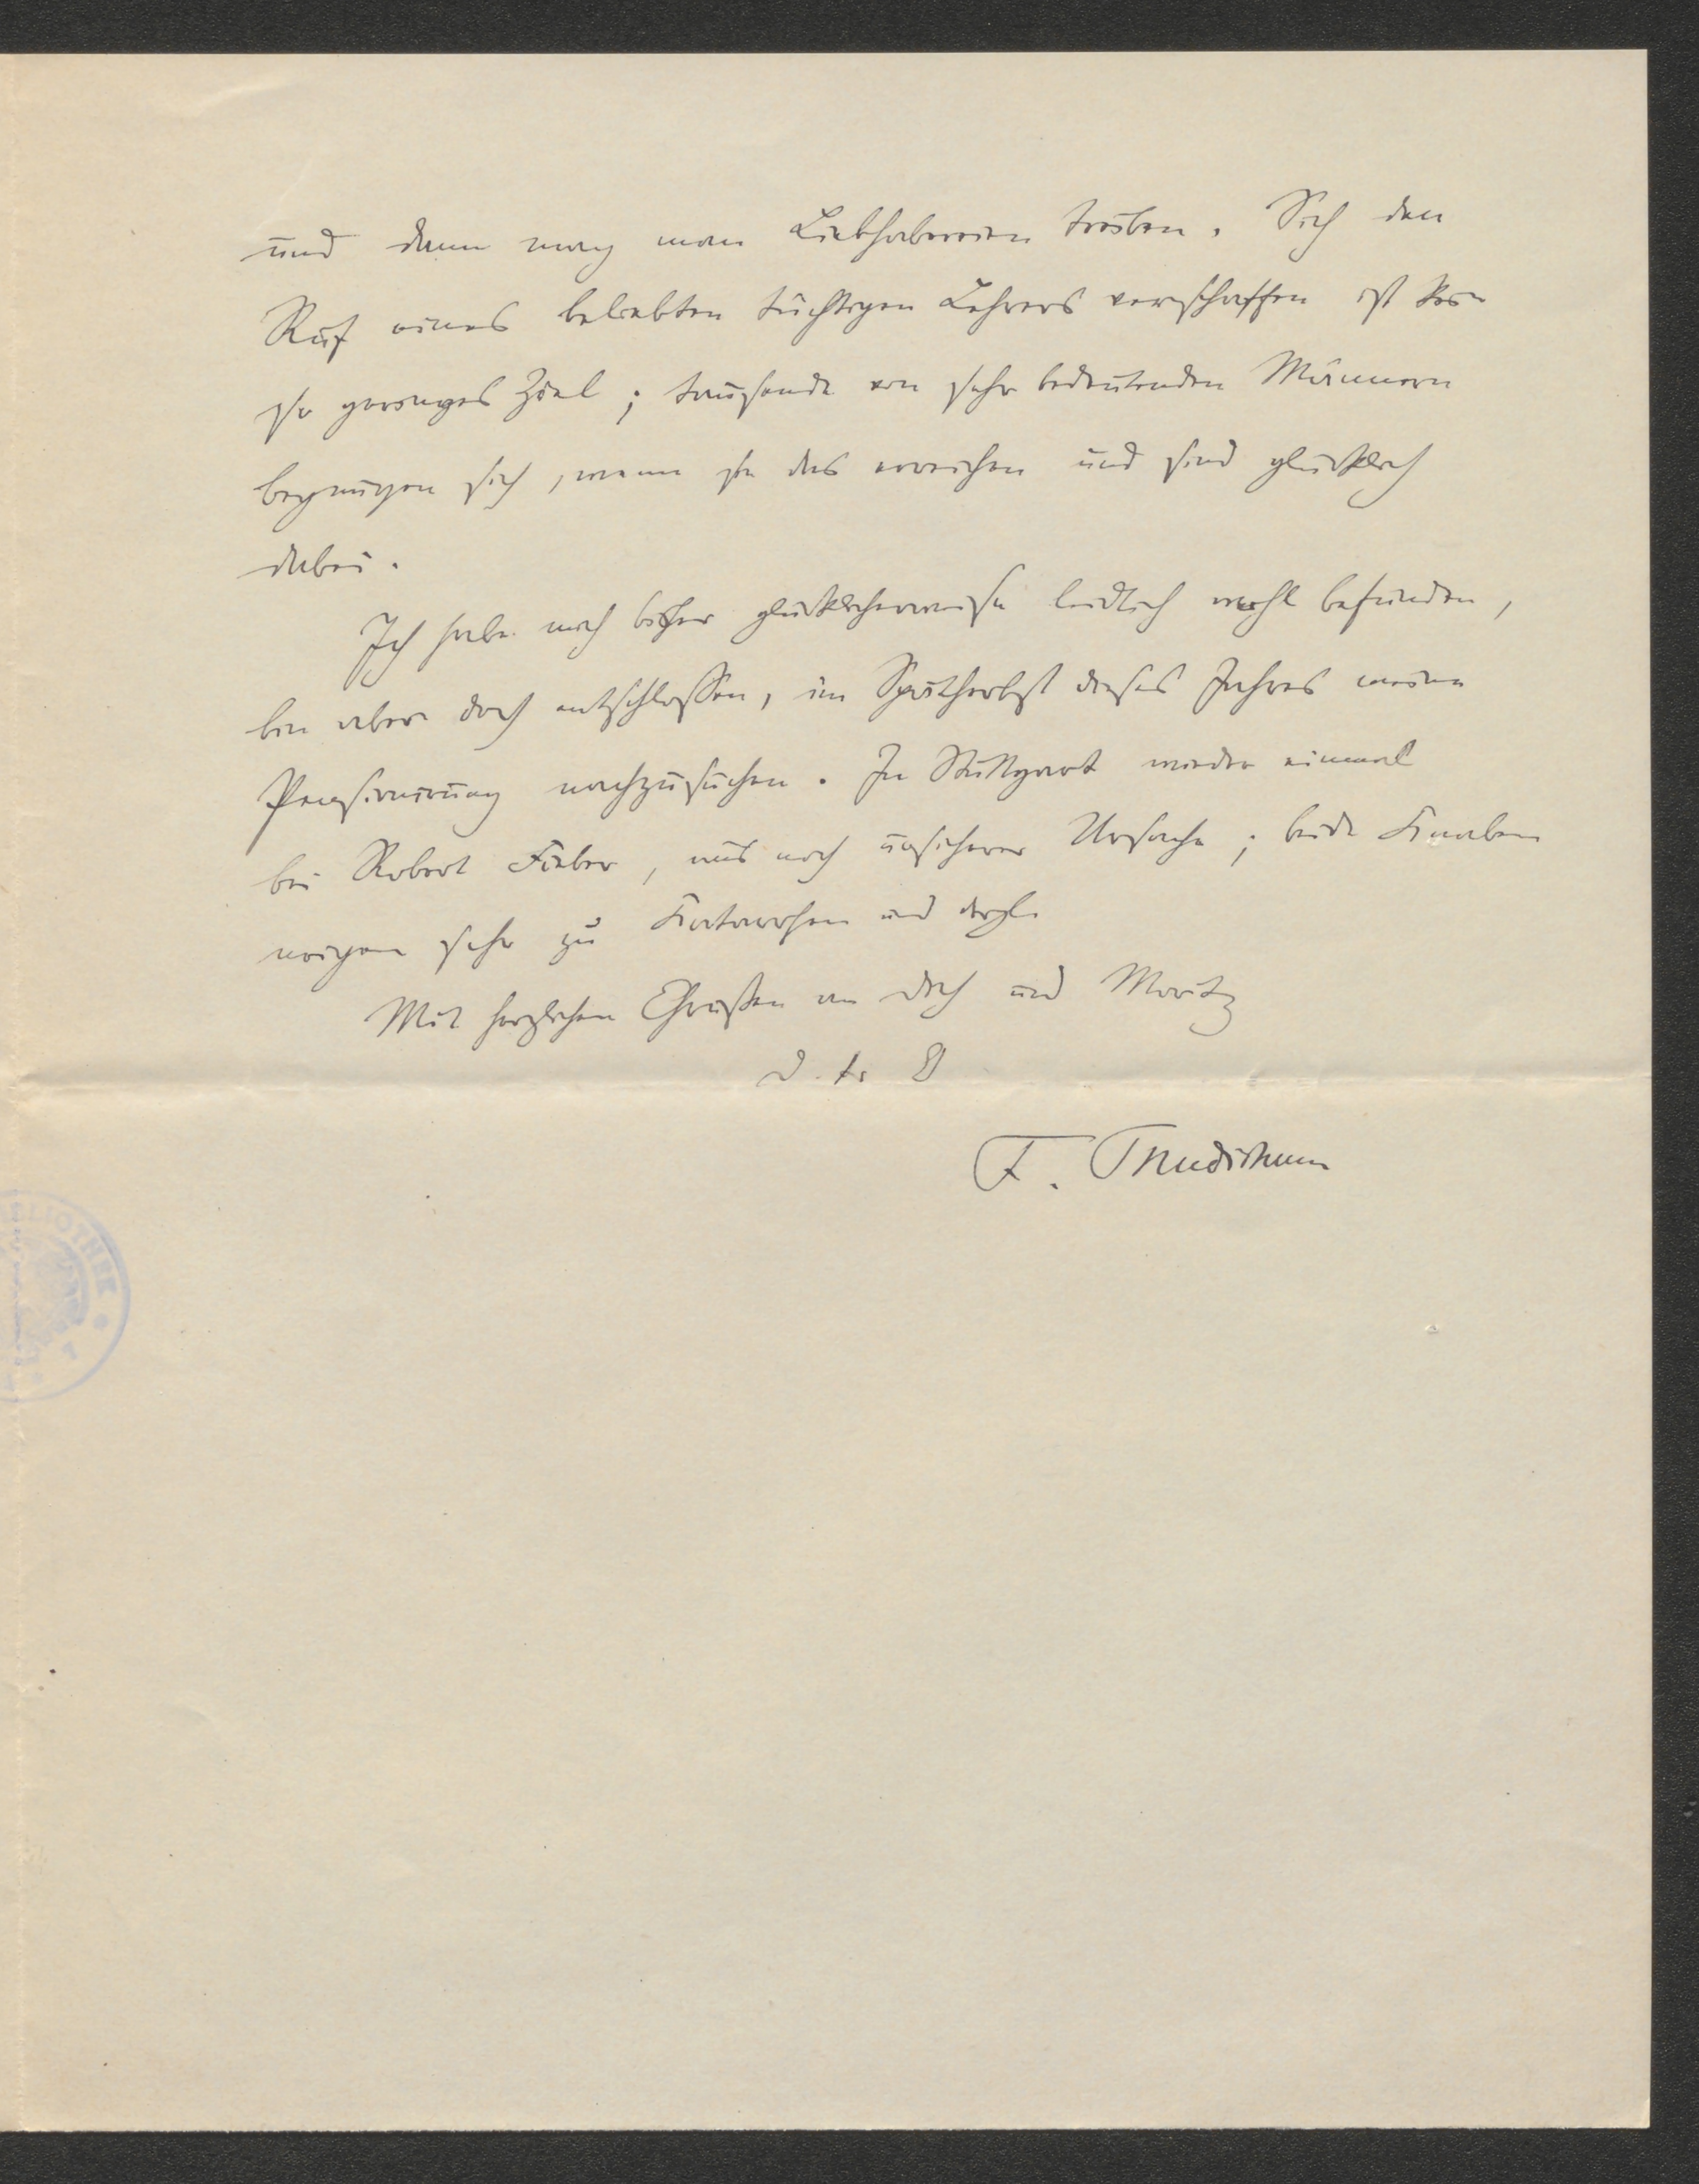 und dann mag man Liebhabereien treiben. Sich den
Ruf eines beliebten tüchtigen Lehrers verschaffen ist kein
so geringes Ziel; tausende von sehr bedeutenden Männern
begnügen sich, wenn sie das erreichen und sind glücklich
dabei.
Ich habe mich bisher glücklicherweise leidlich wohl befunden,
bin aber doch entschlossen, im Spätherbst dieses Jahres meine
Pensionirung nachzusuchen. In Stuttgart wieder einmal
bei Robert Fieber, aus noch unsicherer Ursache; beide Knaben
neigen sehr zu Katarrhen und dergl.
Mit herzlichen Grüßen an Dich und Moritz
D. tr
F. Thudichum
BLIOTHEK